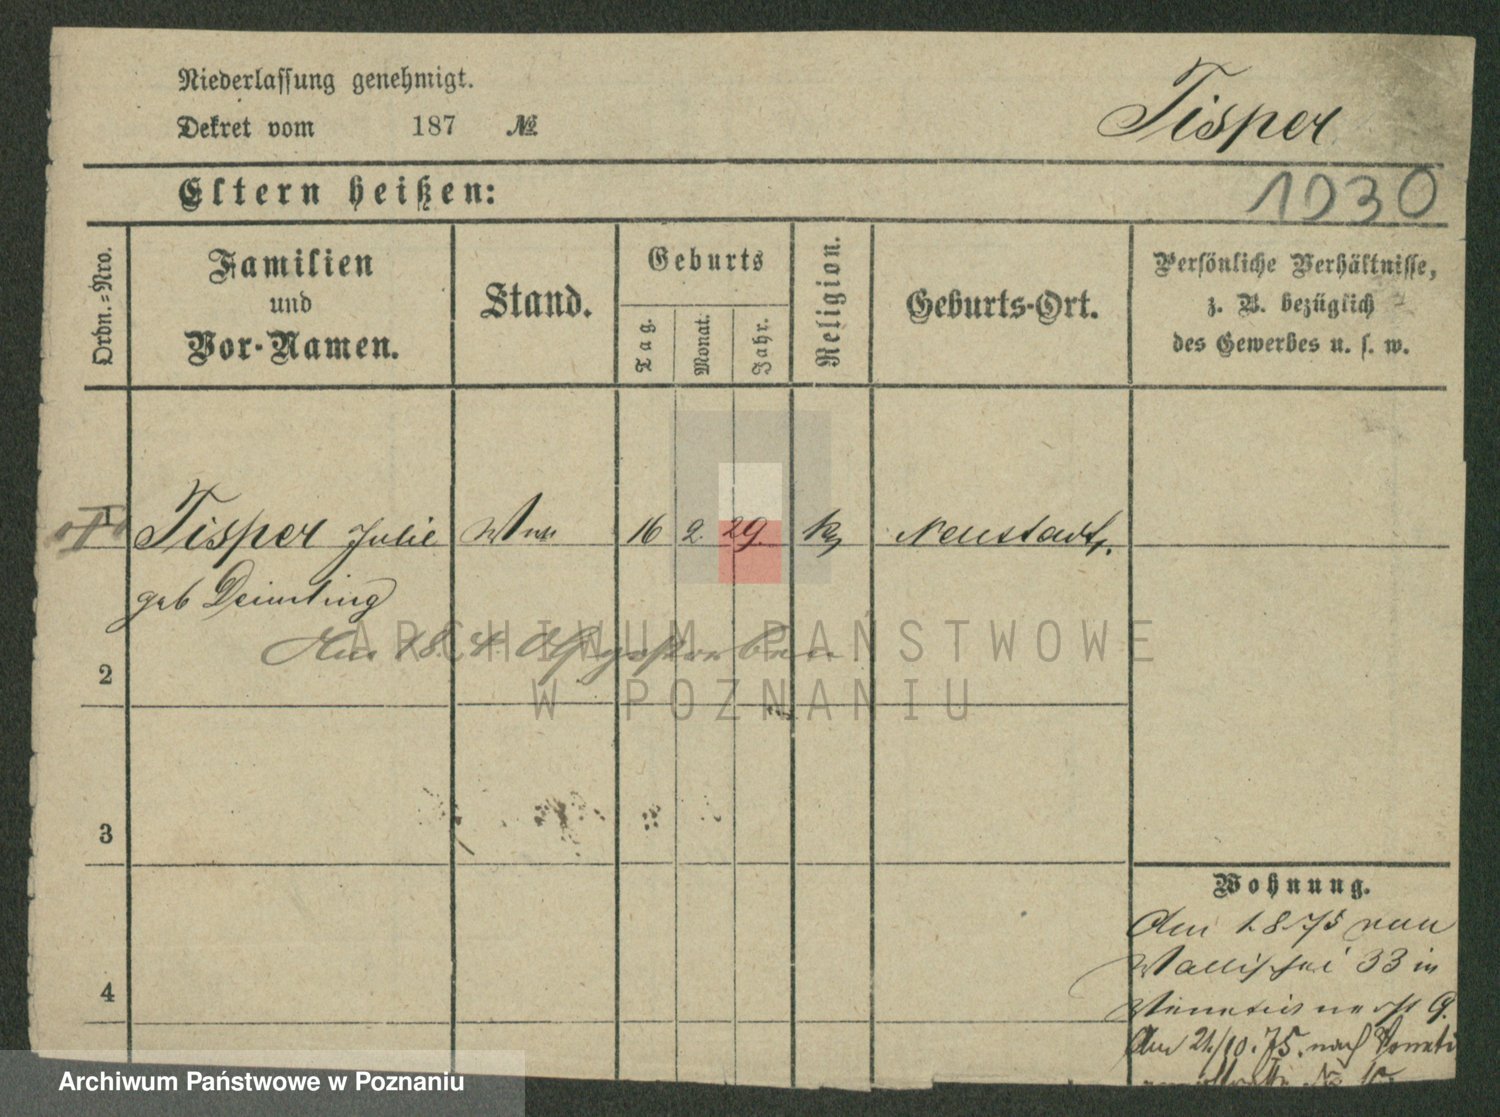 Niederlassung genehmigt.
Dekret vom 187 №
Tisper
Eltern heißen:
1030
Ordn.=Nro.
Familien
und
Vor-Namen.
Stand.
Geburts
Tag.
Monat.
Jahr.
Religion.
Geburts-Ort.
Persönliche Verhältnisse,
z. B. bezüglich
des Gewerbes u. s. w.
1 Tisper Julie 16 2. 29. Neustadt.
geb
Am 18. 4. gestorben
2
3
4
Wohnung.
Am 1 8 75 von
Wallischei 33 in
Am 21/10. 75. nach
ARCHIWUM PAŃSTWOWE
W POZNANIU
Archiwum Państwowe w Poznaniu